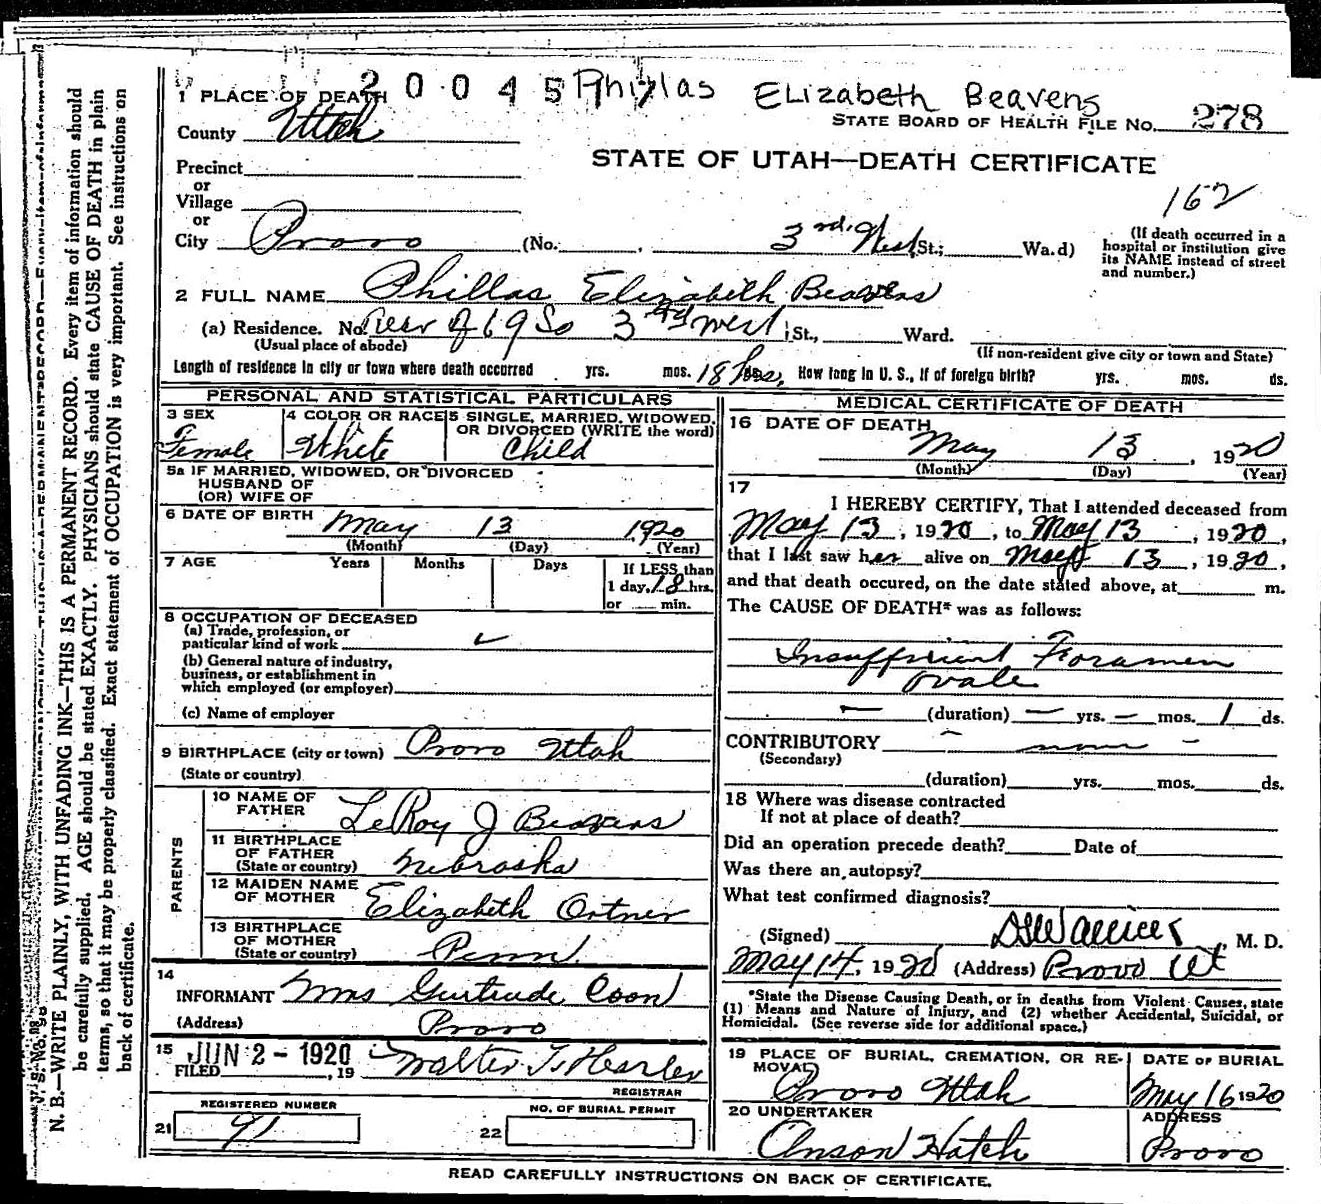 20045 Phiylas Elizabeth Beavens
1 PLACE OF DEATH
STATE BOARD OF HEALTH FILE NO. 278
County Utah
STATE OF UTAH—DEATH CERTIFICATE
Precinct
or
Village
162
or
City Provo (No. 3rd. West St.; Wa.d)
(If death occurred in a hospital or institution give its NAME instead of street and number.)
2 FULL NAME Phillas Elizabeth Beavens
(a) Residence. No. rear of 69 So 3rd west St., Ward.
(Usual place of abode) (If non-resident give city or town and State)
Length of residence in city or town where death occurred yrs. mos. 18 hrs. How long in U. S., if of foreign birth? yrs. mos. ds.
PERSONAL AND STATISTICAL PARTICULARS
3 SEX 4 COLOR OR RACE 5 SINGLE, MARRIED, WIDOWED, OR DIVORCED (WRITE the word)
Female White Child
5a IF MARRIED, WIDOWED, OR DIVORCED
HUSBAND OF
(OR) WIFE OF
6 DATE OF BIRTH May 13 1920
(Month) (Day) (Year)
7 AGE Years Months Days If LESS than
1 day, 18 hrs.
or min.
8 OCCUPATION OF DECEASED
(a) Trade, profession, or
particular kind of work
(b) General nature of industry,
business, or establishment in
which employed (or employer)
(c) Name of employer
9 BIRTHPLACE (city or town) Provo Utah
(State or country)
PARENTS
10 NAME OF FATHER LeRoy J Beavens
11 BIRTHPLACE OF FATHER (State or country) Nebraska
12 MAIDEN NAME OF MOTHER Elizabeth Ortner
13 BIRTHPLACE OF MOTHER (State or country) Penn.
14
INFORMANT Mrs Gertrude Coon
(Address) Provo
15 FILED JUN 2 - 1920, 19 Walter T. Hearley
REGISTRAR
REGISTERED NUMBER
21 91
NO. OF BURIAL PERMIT
22
MEDICAL CERTIFICATE OF DEATH
16 DATE OF DEATH
May 13, 1920
(Month) (Day) (Year)
17
I HEREBY CERTIFY, That I attended deceased from
May 13, 1920, to May 13, 1920,
that I last saw her alive on May 13, 1920,
and that death occured, on the date stated above, at m.
The CAUSE OF DEATH* was as follows:
Insufficient Foramen
Ovale
— (duration) — yrs. — mos. 1 ds.
CONTRIBUTORY - none -
(Secondary)
(duration) yrs. mos. ds.
18 Where was disease contracted
If not at place of death?
Did an operation precede death? Date of
Was there an autopsy?
What test confirmed diagnosis?
(Signed) M. D.
May 14, 1920 (Address) Provo Ut
*State the Disease Causing Death, or in deaths from Violent Causes, state
(1) Means and Nature of Injury, and (2) whether Accidental, Suicidal, or
Homicidal. (See reverse side for additional space.)
19 PLACE OF BURIAL, CREMATION, OR REMOVAL DATE OF BURIAL
Provo Utah May 16 1920
20 UNDERTAKER ADDRESS
Anson Hatch Provo
READ CAREFULLY INSTRUCTIONS ON BACK OF CERTIFICATE.
N. B.—WRITE PLAINLY, WITH UNFADING INK—THIS IS A PERMANENT RECORD. Every item of information should
be carefully supplied. AGE should be stated EXACTLY. PHYSICIANS should state CAUSE OF DEATH in plain
terms, so that it may be properly classified. Exact statement of OCCUPATION is very important. See instructions on
back of certificate.